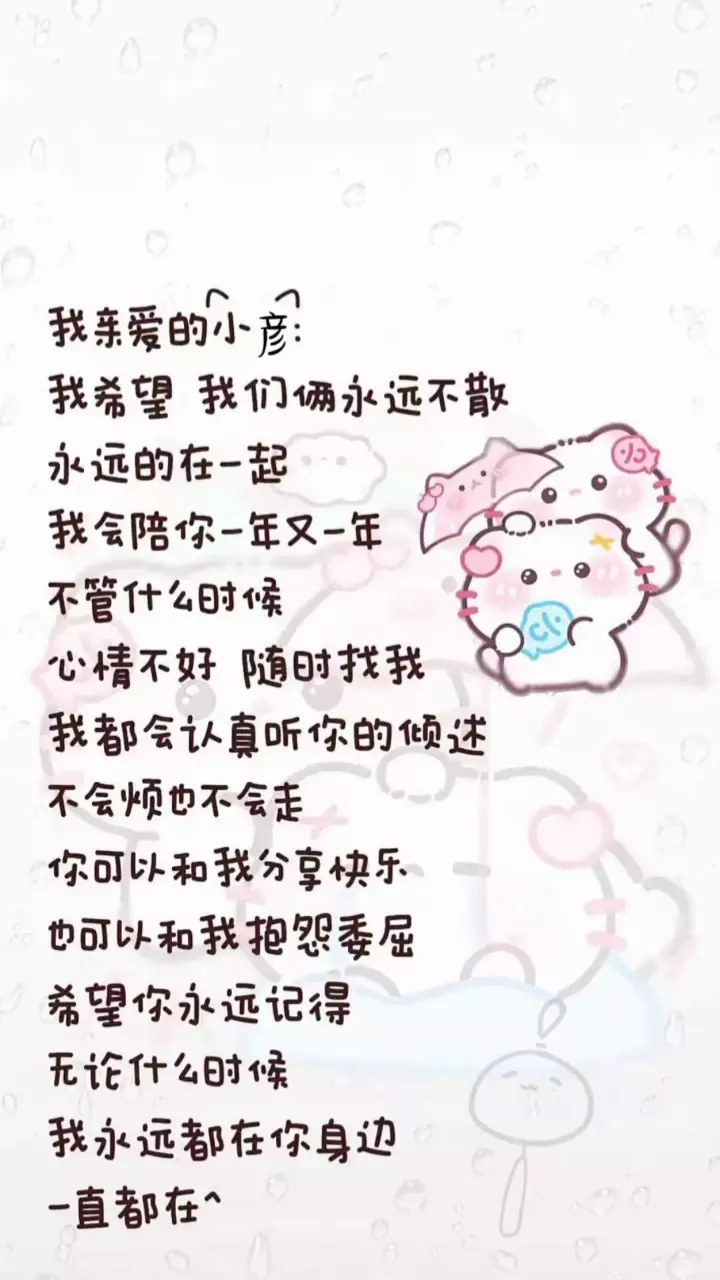 我亲爱的小彦:
我希望 我们俩永远不散
永远的在一起
我会陪你一年又一年
不管什么时候
心情不好 随时找我
我都会认真听你的倾述
不会烦也不会走
你可以和我分享快乐
也可以和我抱怨委屈
希望你永远记得
无论什么时候
我永远都在你身边
一直都在^